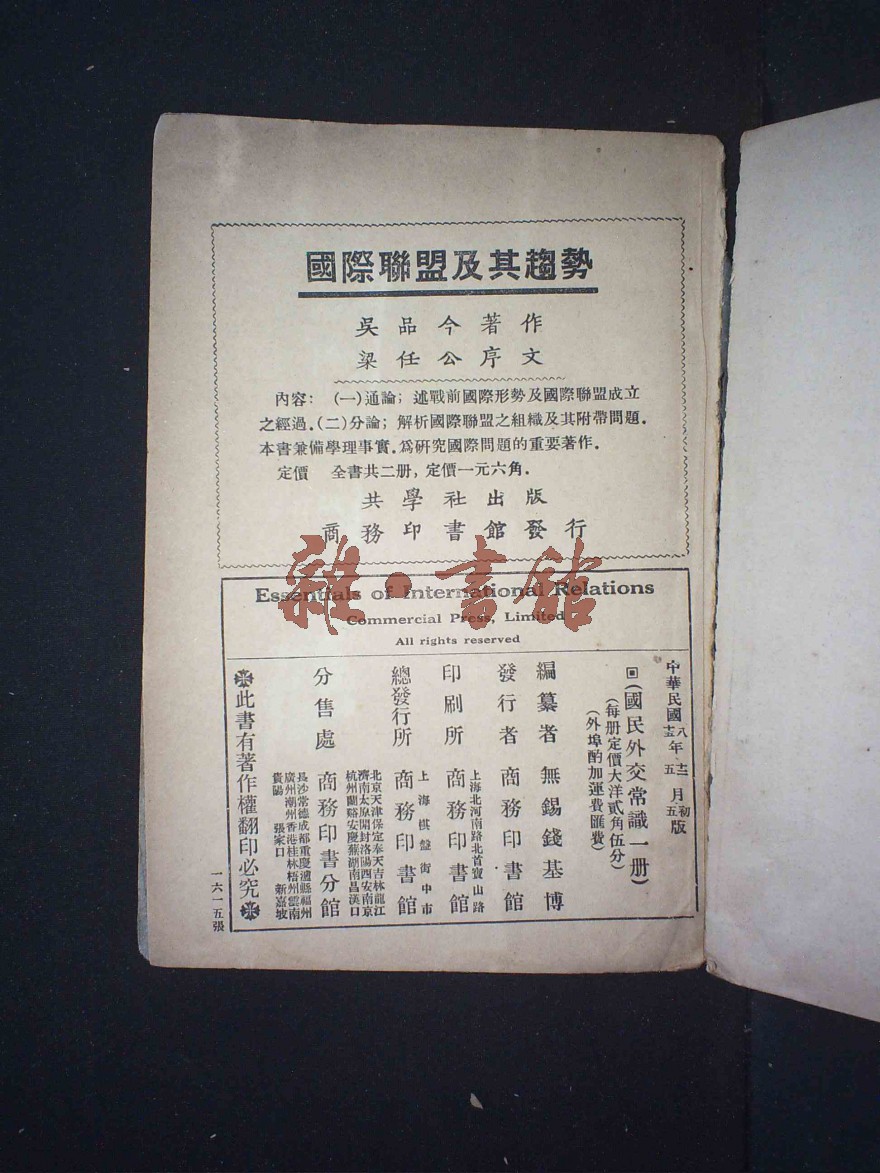 國際聯盟及其趨勢
吳品今著作
梁任公序文
內容：(一)通論；述戰前國際形勢及國際聯盟成立
之經過．(二)分論；解析國際聯盟之組織及其附帶問題．
本書兼備學理事實．爲研究國際問題的重要著作．
定價　全書共二册，定價一元六角．
共學社出版
商務印書館發行
雜·書館
Essentials of International Relations
Commercial Press, Limited
All rights reserved
中華民國
八年十二月初版
五月五版
(國民外交常識一册)
(每册定價大洋貳角伍分)
(外埠酌加運費匯費)
編纂者　無錫錢基博
發行者　商務印書館
上海北河南路北首寶山路
印刷所　商務印書館
上海棋盤街中市
總發行所　商務印書館
北京天津保定奉天吉林龍江
濟南太原開封洛陽西安南京
杭州蘭谿安慶蕪湖南昌漢口
分售處　商務印書分館
長沙常德成都重慶瀘縣福州
廣州潮州香港桂林梧州雲南
貴陽　張家口　新嘉坡
此書有著作權翻印必究
一六一五張